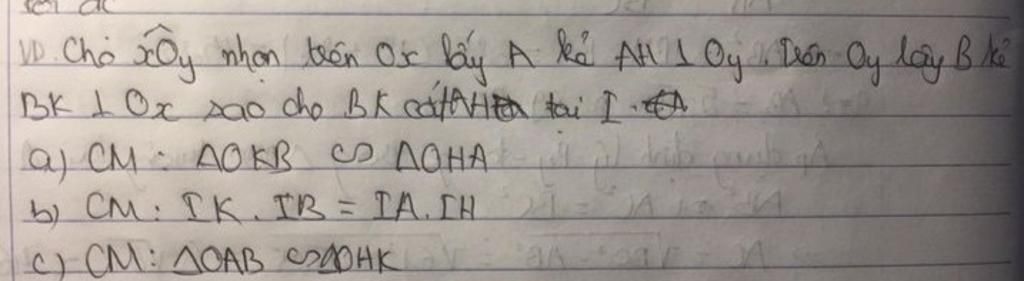 VD. Cho xÔy nhọn trên Ox lấy A kẻ AH ⊥ Oy. Trên Oy lấy B kẻ
BK ⊥ Ox sao cho BK cắt AH tại I.
a) CM: ΔOKB ∽ ΔOHA
b) CM: IK. IB = IA. IH
c) CM: ΔOAB ∽ ΔOHK